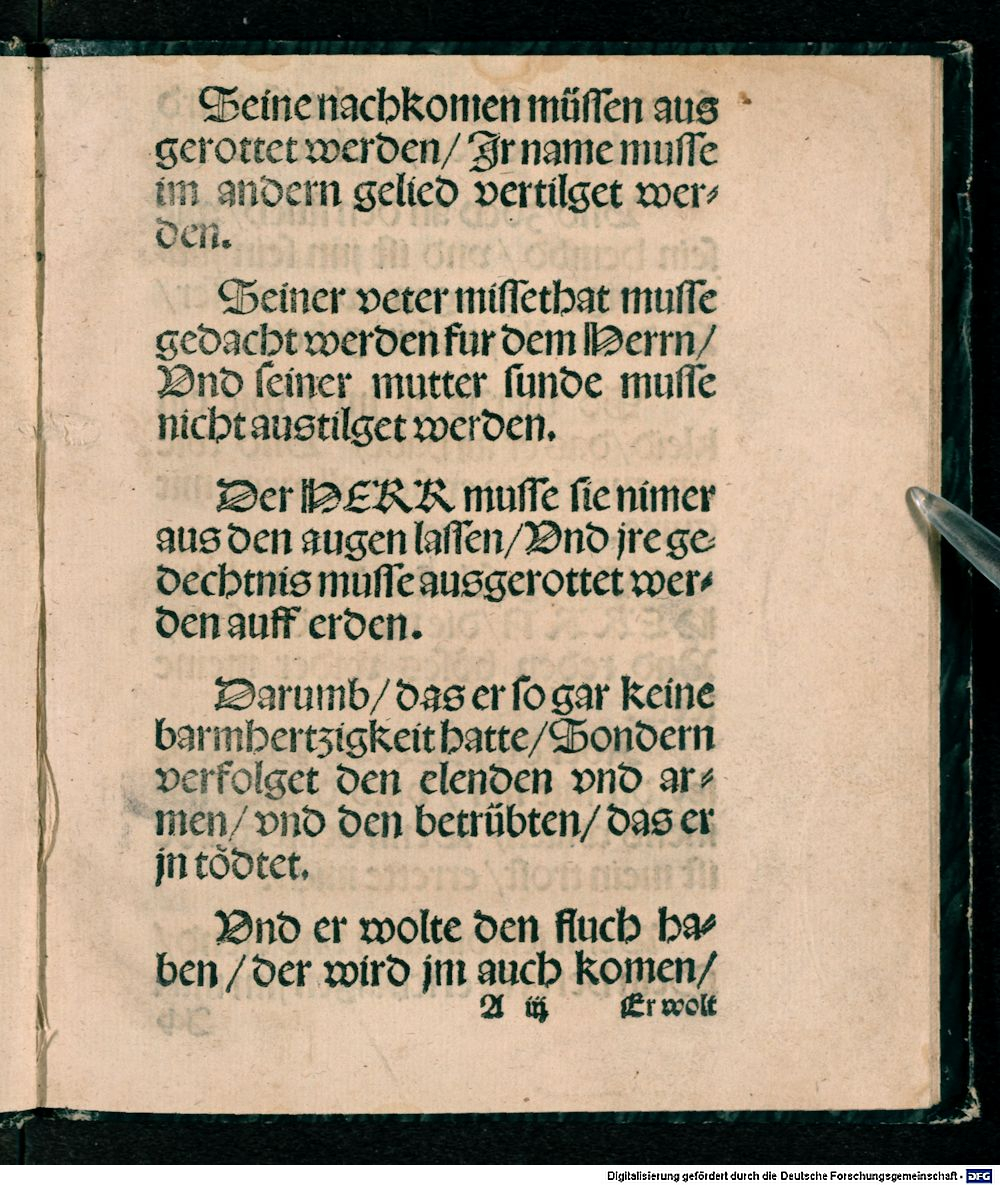 Seine nachkomen müssen aus
gerottet werden/ Jr name musse
im andern gelied vertilget wer⸗
den.
Seiner veter missethat musse
gedacht werden fur dem Herrn/
Vnd seiner mutter sunde musse
nicht austilget werden.
Der HERR musse sie nimer
aus den augen lassen/ Vnd jre ge⸗
dechtnis musse ausgerottet wer⸗
den auff erden.
Darumb/ das er so gar keine
barmhertzigkeit hatte/ Sondern
verfolget den elenden vnd ar⸗
men/ vnd den betrübten/ das er
jn tödtet.
Vnd er wolte den fluch ha⸗
ben / der wird jm auch komen/
A iij Er wolt
Digitalisierung gefördert durch die Deutsche Forschungsgemeinschaft - DFG